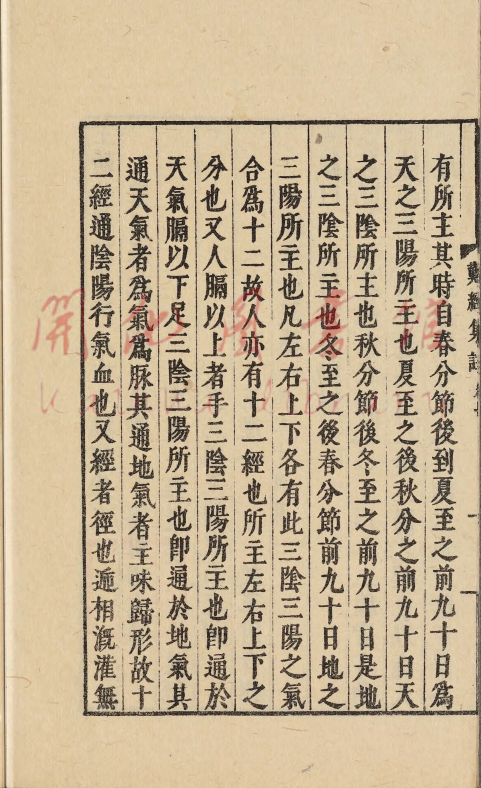 有所主其時自春分節後到夏至之前九十日爲
天之三陽所主也夏至之後秋分之前九十日天
之三陰所主也秋分節後冬至之前九十日是地
之三陰所主也冬至之後春分節前九十日地之
三陽所主也凡左右上下各有此三陰三陽之氣
合爲十二故人亦有十二經也所主左右上下之
分也又人膈以上者手三陰三陽所主也卽通於
天氣膈以下足三陰三陽所主也卽通於地氣其
通天氣者爲氣爲脉其通地氣者主味歸形故十
二經通陰陽行氣血也又經者徑也遞相漑灌無
難經集註
開山圖書館